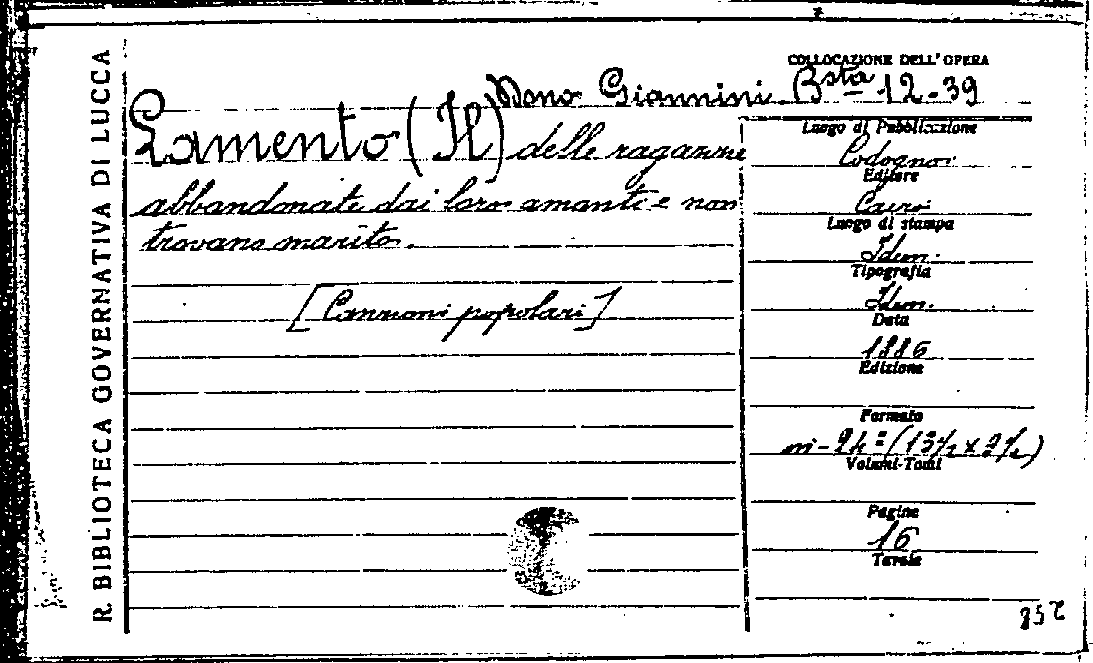 R. BIBLIOTECA GOVERNATIVA DI LUCCA
COLLOCAZIONE DELL'OPERA
Dono Giannini Bsta 12-39
Lamento (Il) delle ragazze
abbandonate dai loro amanti e non
trovano marito.
[Canzoni popolari]
Luogo di Pubblicazione
Codogno
Editore
Cairo
Luogo di stampa
Idem.
Tipografia
Idem.
Data
1886
Edizione
Formato
in-24º (13½ x 9½)
Volumi-Tomi
Pagine
16
Tavole